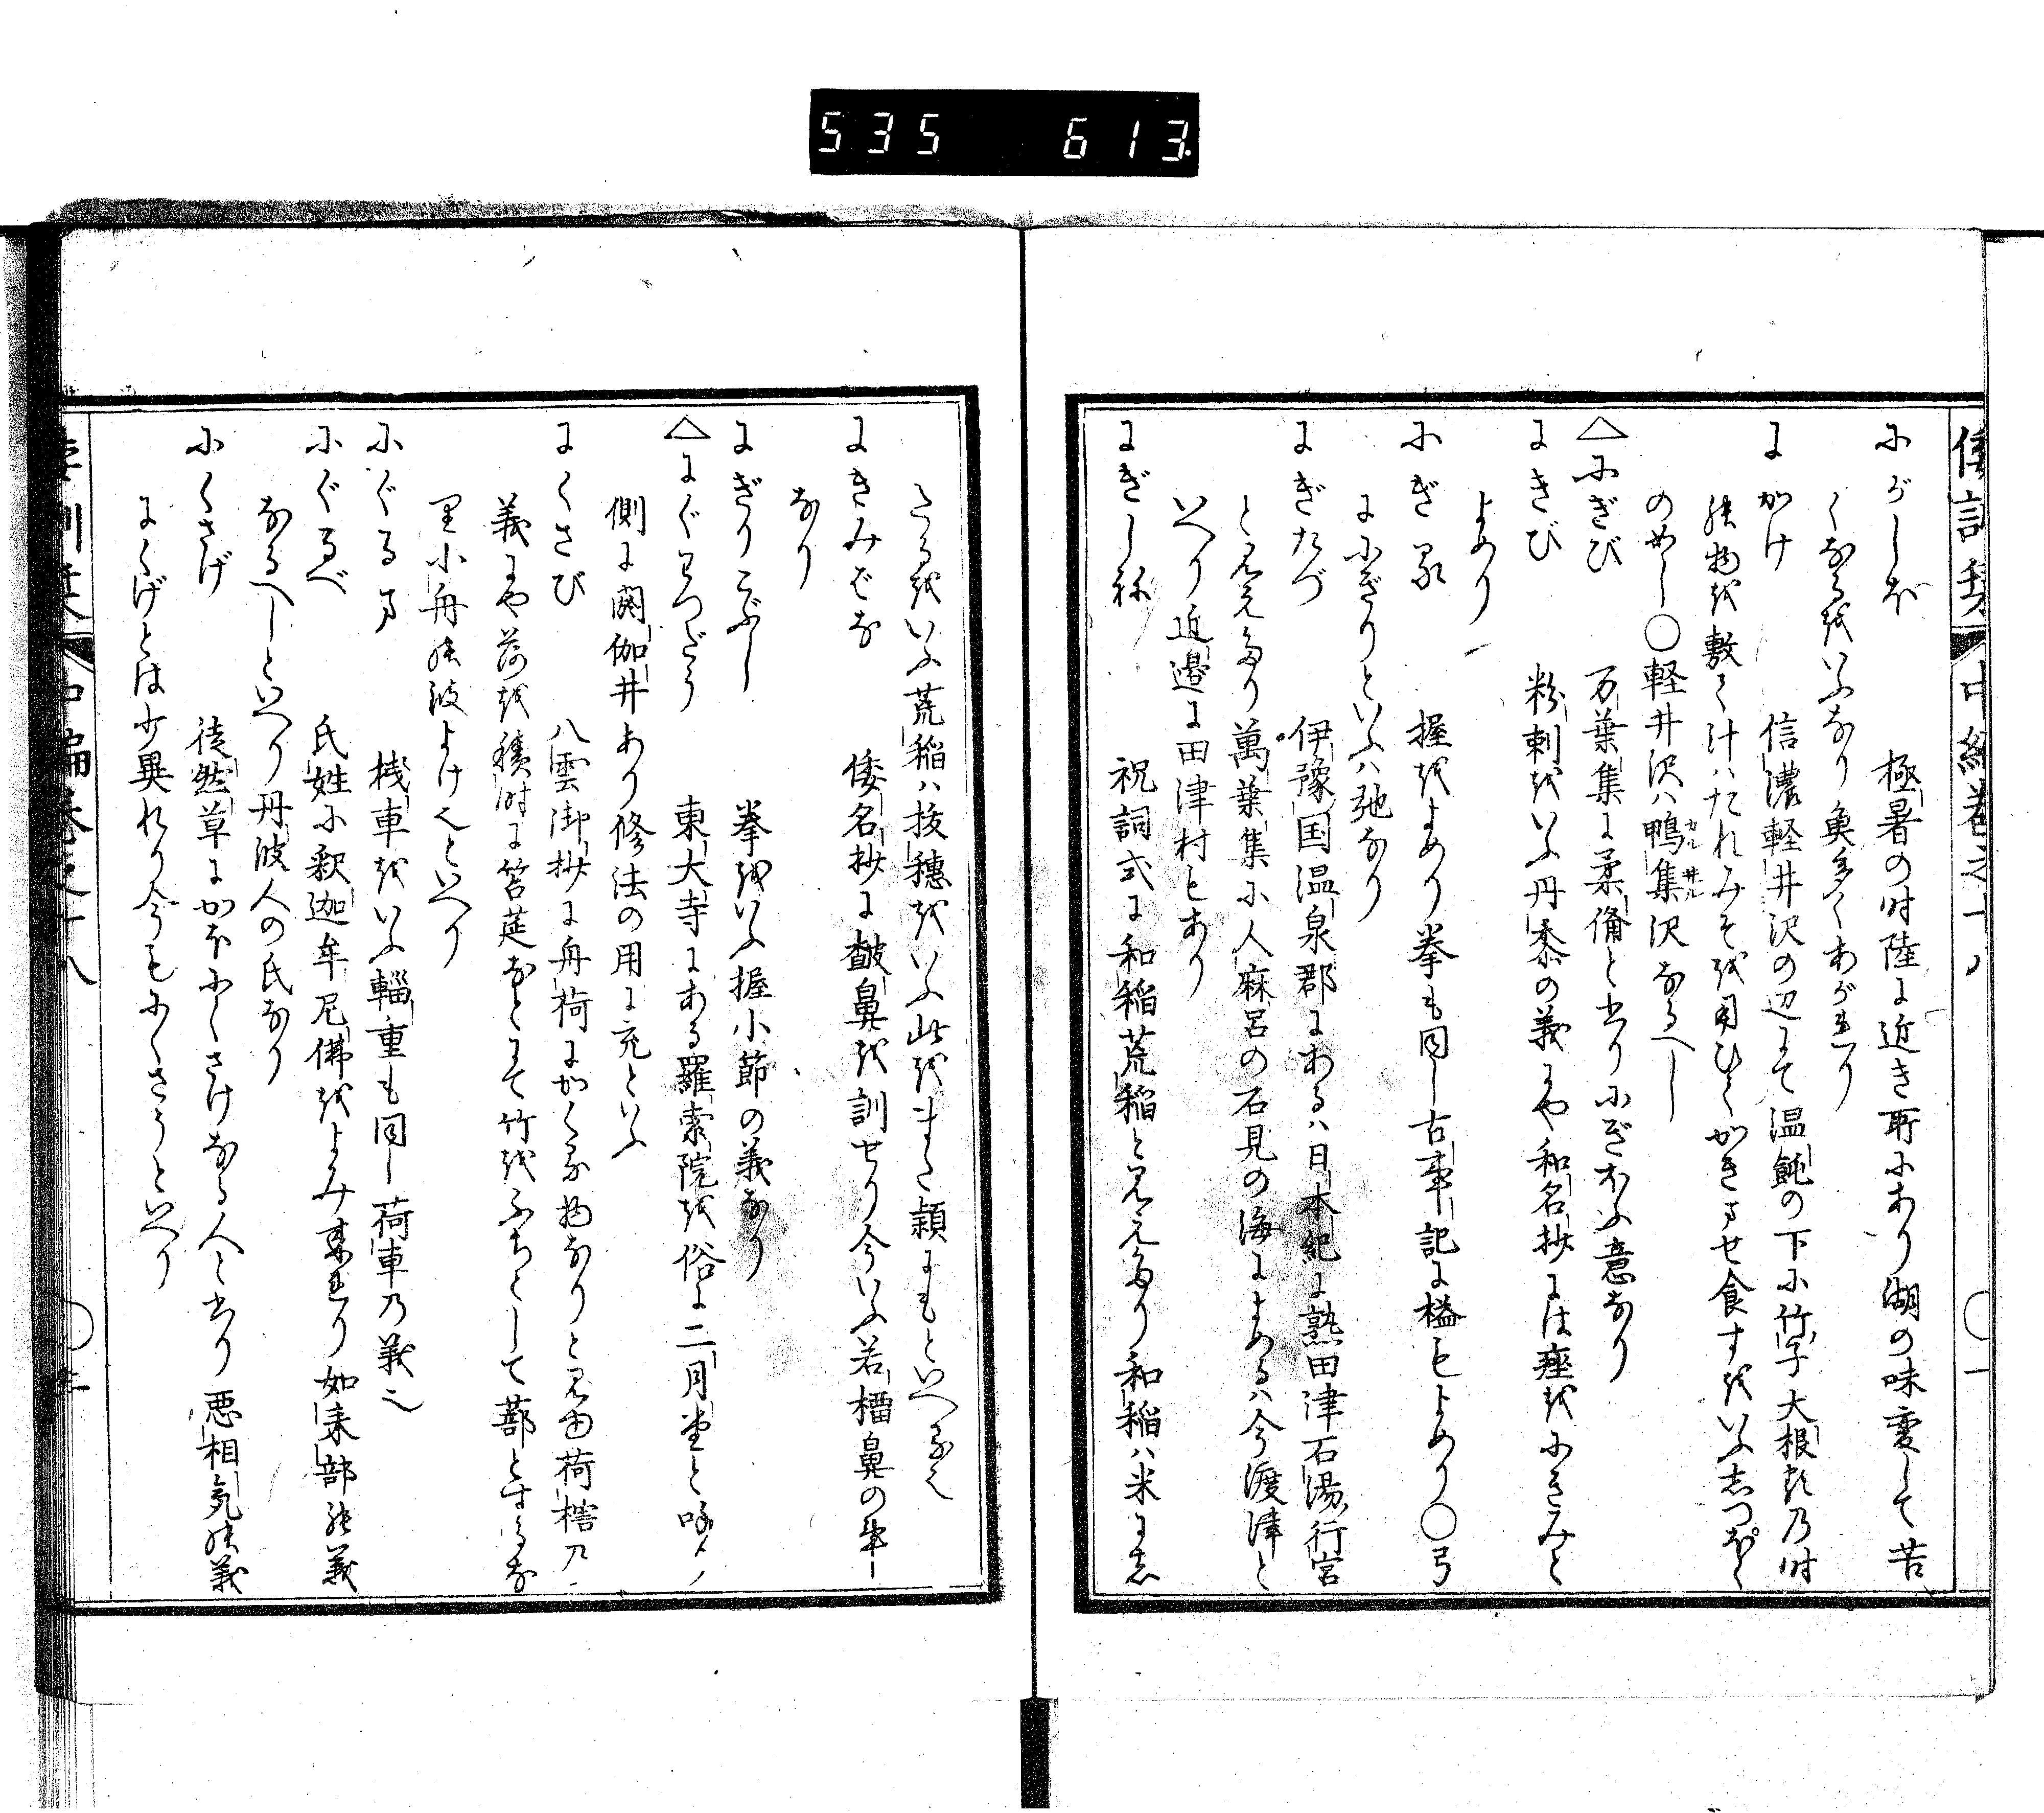 535 613.
倭訓栞 中編巻之十八
にがしほ 極暑の時陸に近き所にあり湖の味変して苦
くなるをいふなり魚多くあがれり
にかけ 信濃軽井沢の辺にて温飩の下に竹子大根抔乃時
の物を敷て汁ハたれみそを用ひてかきませ食すをいふしつほく
のめし〇軽井沢ハ鴨集沢なるへし
カル井ル
△にぎび 万葉集に柔備と書りにぎおふ意なり
にきび 粉刺をいふ丹黍の義にや和名抄には痤をにきみと
よめり
にぎる 握をよめり拳も同し古事記に搤もよめり〇弓
ににぎりといふハ弝なり
にぎたづ 伊豫国温泉郡にあるハ日本紀に熟田津石湯行宮
と見えたり萬葉集に人麻呂の石見の海によめるハ今渡津と
いへり近邉に田津村もあり
にぎしね 祝詞式に和稲荒稲と見えたり和稲ハ米にし
たるをいふ荒稲ハ抜穂をいふ此をまた頴にもといへる也
にきみはな 倭名抄に皶鼻を訓せり今いふ若榴鼻の事
なり
にぎりこぶし 拳をいふ握小節の義なり
△にぐわつだう 東大寺にある羅索院を俗に二月堂と呼り
側に閼伽井あり修法の用に充といふ
にくさび 八雲御抄に舟荷にかくる物なりと見ゆ荷楛乃
義にや荷を積時に筥莚なとにて竹をふちとして蔀とするな
り小舟の波よけ也といへり
にぐるま 桟車をいふ輜重も同し荷車乃義也
にぐるべ 氏姓に釈迦牟尼佛をよみ来れり如来部の義
なるへしといへり丹波人の氏なり
にくさげ 徒然草にかほにくさけなる人と書り悪相気の義
にくげとは少異れり今もにくさうといへり